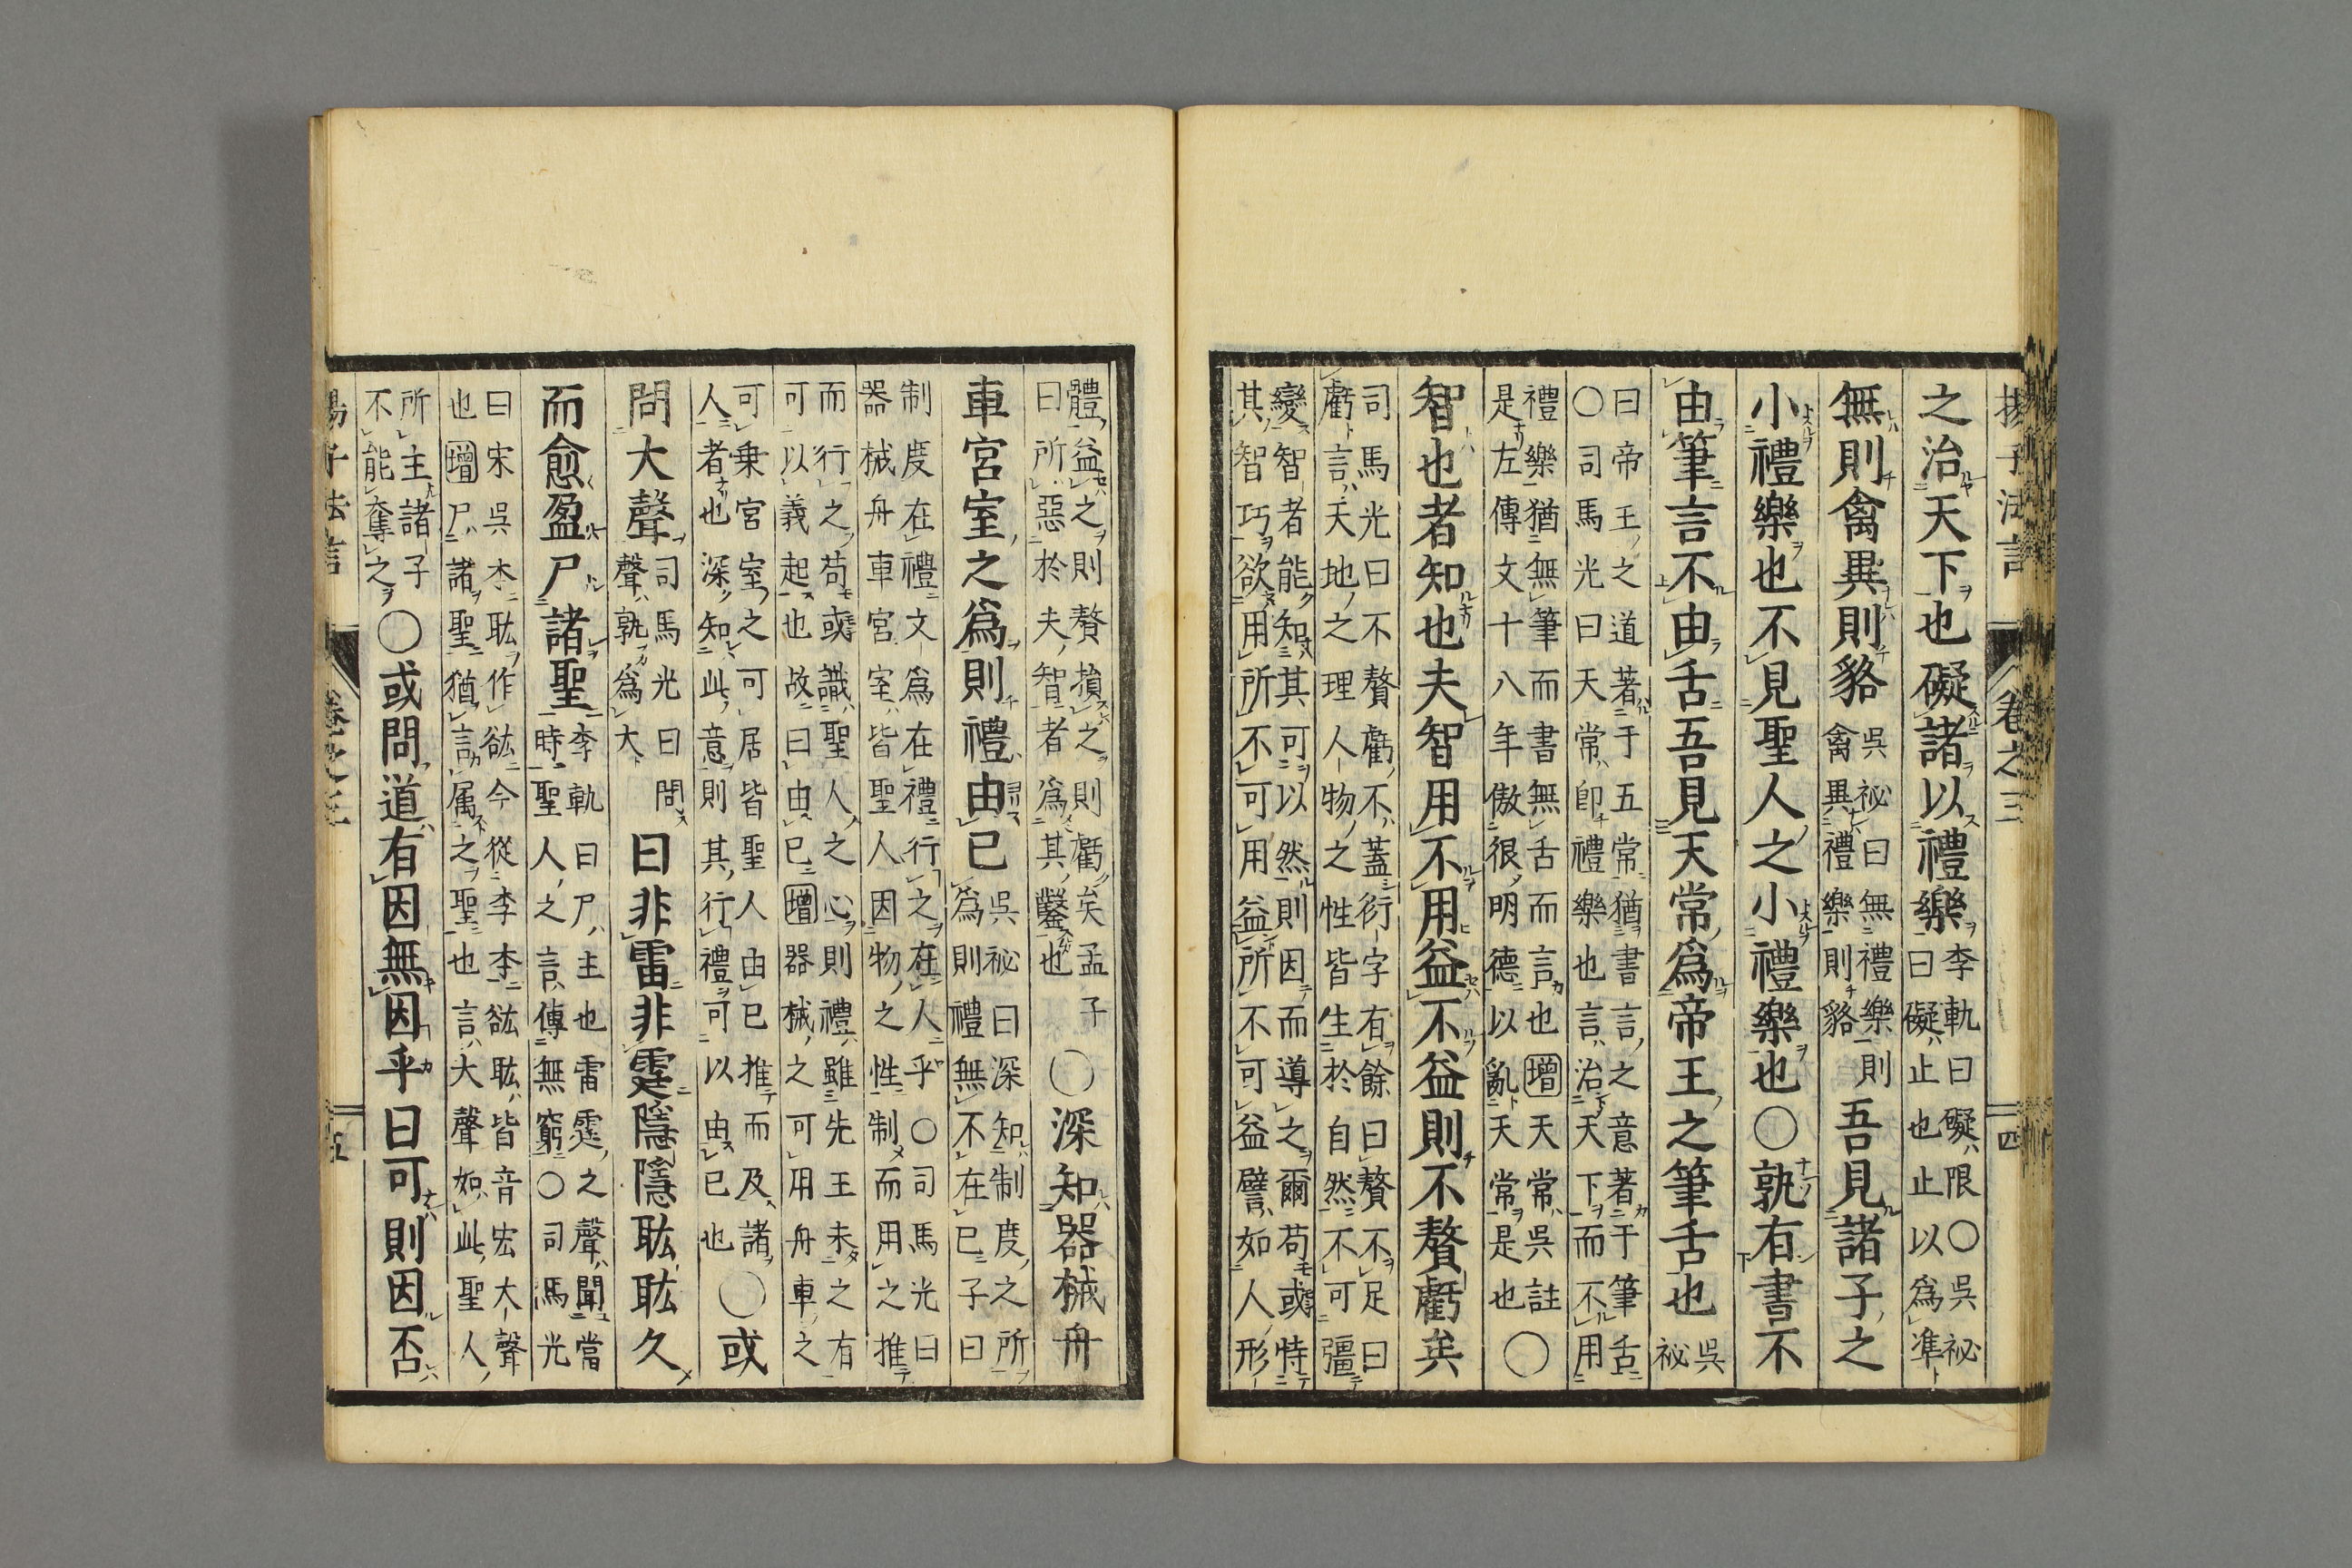 揚子法言 卷之三 四
之治天下也礙諸以禮樂李軌曰礙限○吳祕
曰礙止也止以爲準
無則禽異則貉吳祕曰無禮樂則
禽異禮樂則貉吾見諸子之
小禮樂也不見聖人之小禮樂也○孰有書不
由筆言不由舌吾見天常爲帝王之筆舌也吳
祕
曰帝王之道著于五常猶書言之意著于筆舌
○司馬光曰天常卽禮樂也言治天下而不用
禮樂猶無筆而書無舌而言也增天常吳註
是左傳文十八年傲很明德以亂天常是也○
智也者知也夫智用不用益不益則不贅虧矣
司馬光曰不贅虧不蓋衍字有餘曰贅不足曰
虧言天地之理人物之性皆生於自然不可彊
變智者能知其可以然則因而導之爾苟或恃
其智巧欲用所不可用益所不可益譬如人形
體益之則贅損之則虧矣孟子
曰所惡於夫智者爲其鑿也○深知器械舟
車宮室之爲則禮由已吳祕曰深知制度之所
爲則禮無不在已子曰
制度在禮文爲在禮行之在人乎○司馬光曰
器械舟車宮室皆聖人因物之性制而用之推
而行之苟或識聖人之心則禮雖先王未之有
可以義起也故曰由已增器械之可用舟車之
可乗宮室之可居皆聖人由已推而及諸
人者也深知此意則其行禮可以由已也○或
問大聲司馬光曰問
聲孰爲大曰非雷非霆隱隱耾耾久
而愈盈尸諸聖李軌曰尸主也雷霆之聲聞當
時聖人之言傳無窮○司馮光
曰宋吳本耾作紘今從李本紘耾皆音宏大聲
也增尸諸聖猶言属之聖也言大聲如此聖人
所主諸子
不能奪之○或問道有因無因乎曰可則因否
揚子法言 卷之三 五